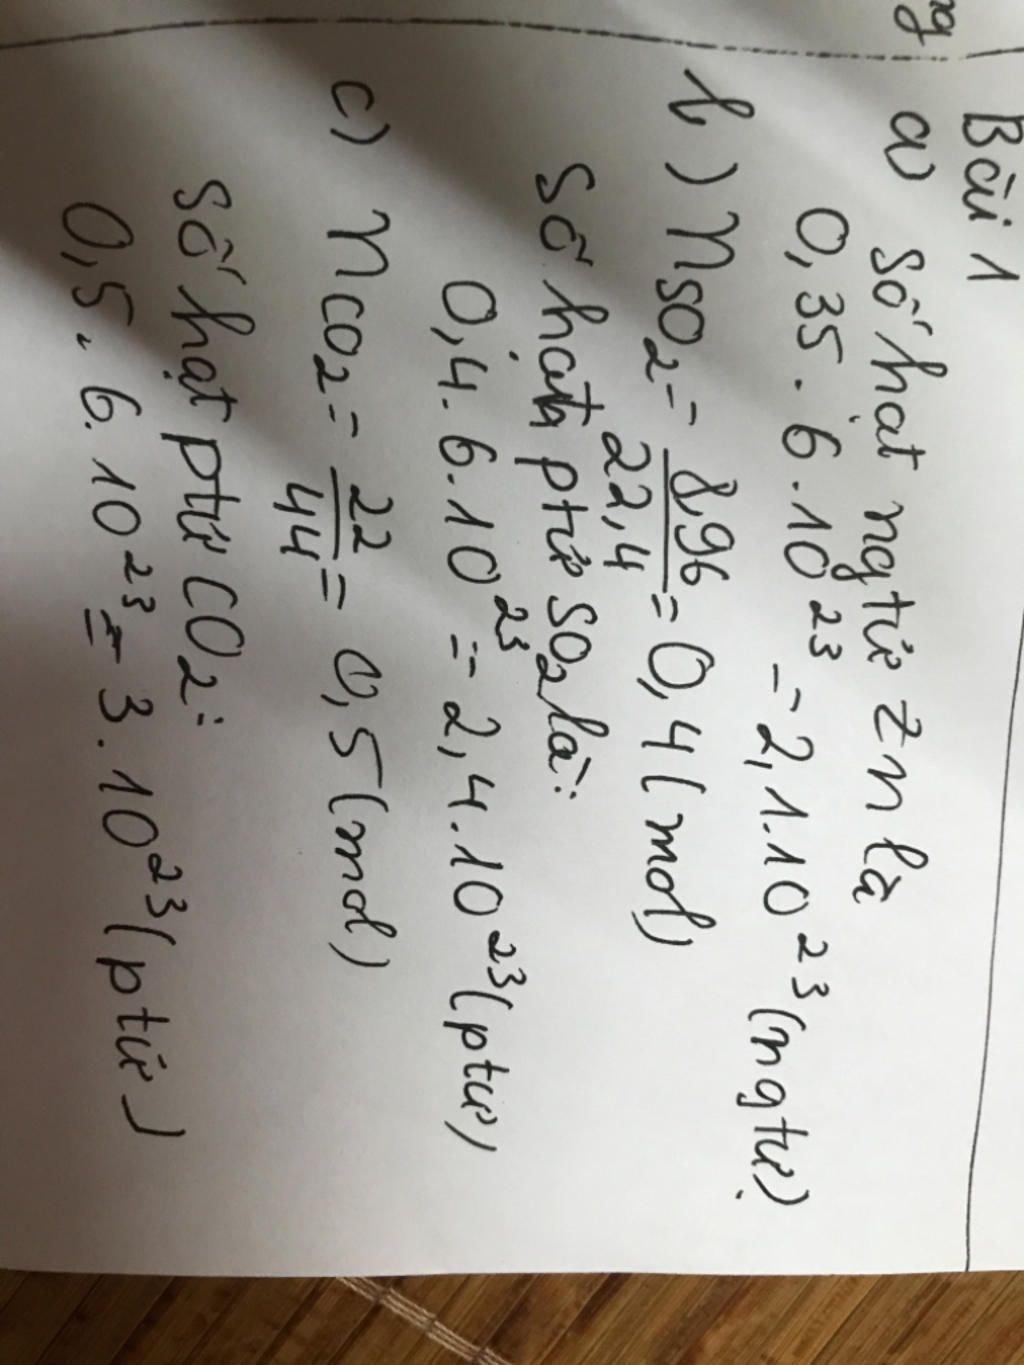 ng
Bài 1
a) Số hạt ngtử Zn là
0,35 . 6 . 10²³ = 2,1.10²³ (ngtử)
b,) nSO₂ = 8,96/22,4 = 0,4 (mol)
Số hạt ptử SO₂ là:
0,4 . 6 . 10²³ = 2,4.10²³ (ptử)
c) nCO₂ = 22/44 = 0,5 (mol)
Số hạt ptử CO₂:
0,5 . 6. 10²³ = 3 . 10²³ (ptử)